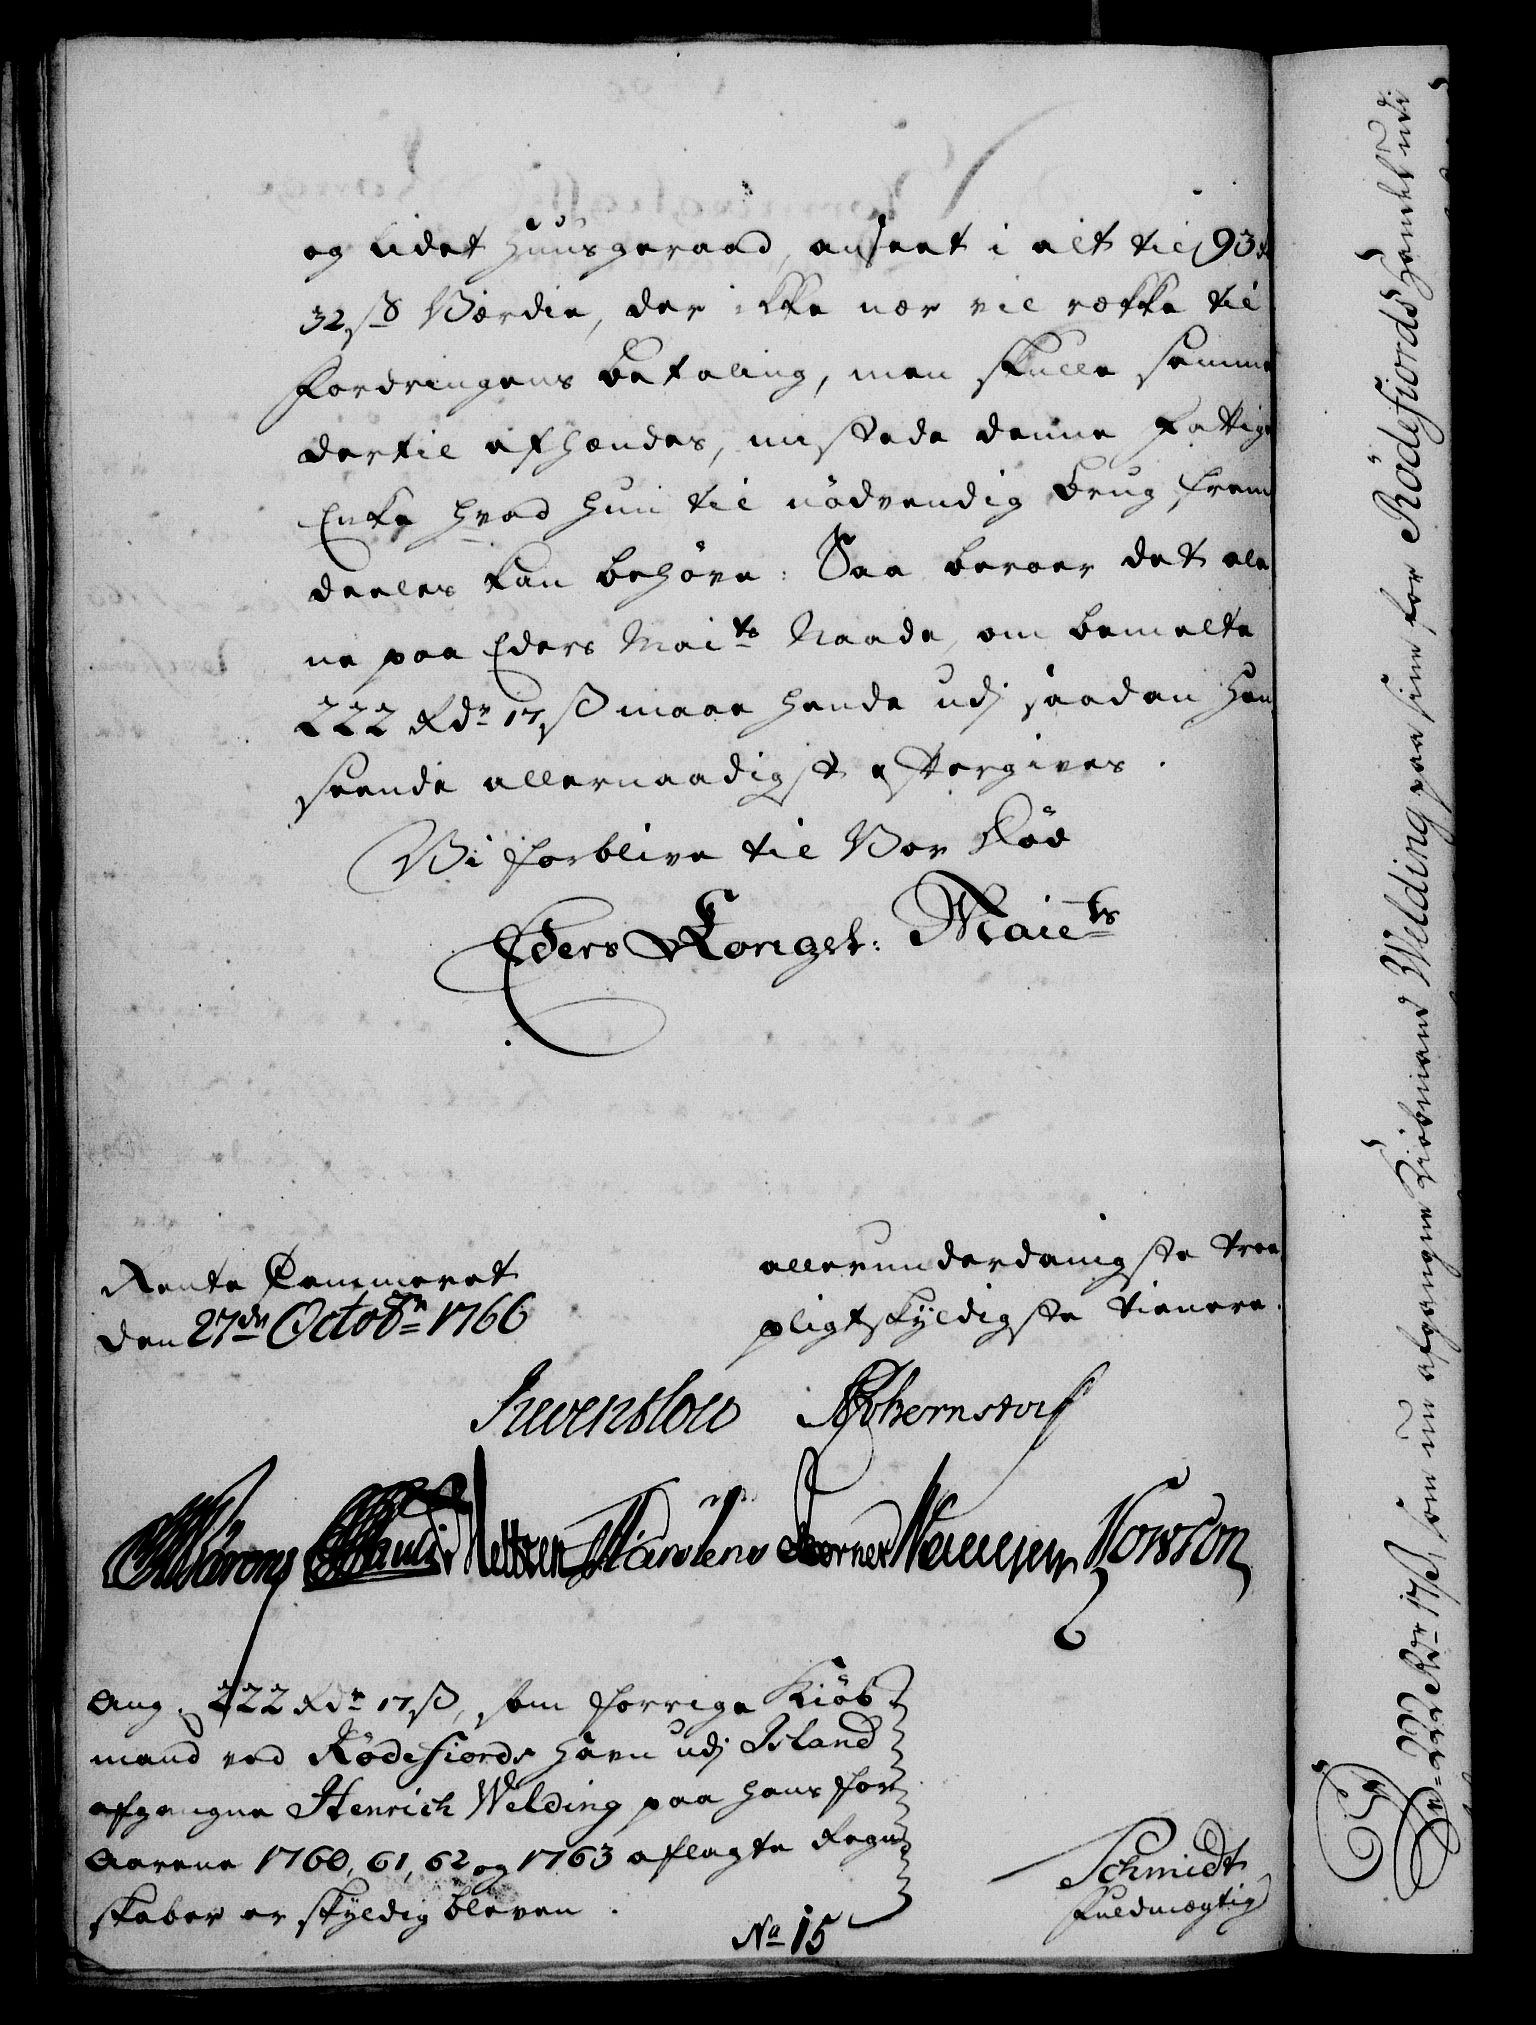 og lidet Huusgeraad, anseet i alt til 93 rd
32 ß Værdie, der ikke nær vil række til
Fordringens Betaling, men skulle samme
dertil afhændes, mistede denne fattige
Enke hvad hun til nödvendig Brug frem
deeles kan behöve: Saa beroer det ale
ne paa Eders Maits Naade, om bemelte
222 Rdr 17 ß maae hende udj saadan Hen
seende allernaadigst eftergives.
Vi forblive til Vor Död
Eders Kongel: Maiets
Rente Cammeret
den 27de Octobr 1766
allerunderdanigste troe
pligtskyldigste tienere.
Revenslou
Schernstorf
Mettzen
Carstens
Nowson
Ang. 222 Rdr 17 ß, som forrige Kiöb
mand ved Rödefiords Havn udj Island
afgangne Henrich Welding paa hans for
Aarene 1760, 61, 62 og 1763 aflagte Regn
skaber er skyldig bleven.
No 15
Schmidt
Fuldmægtig
De 222 Rdr 17 ß, som nu afgangne Kiöbmand Welding paa sine for Rödefiords Handel udi